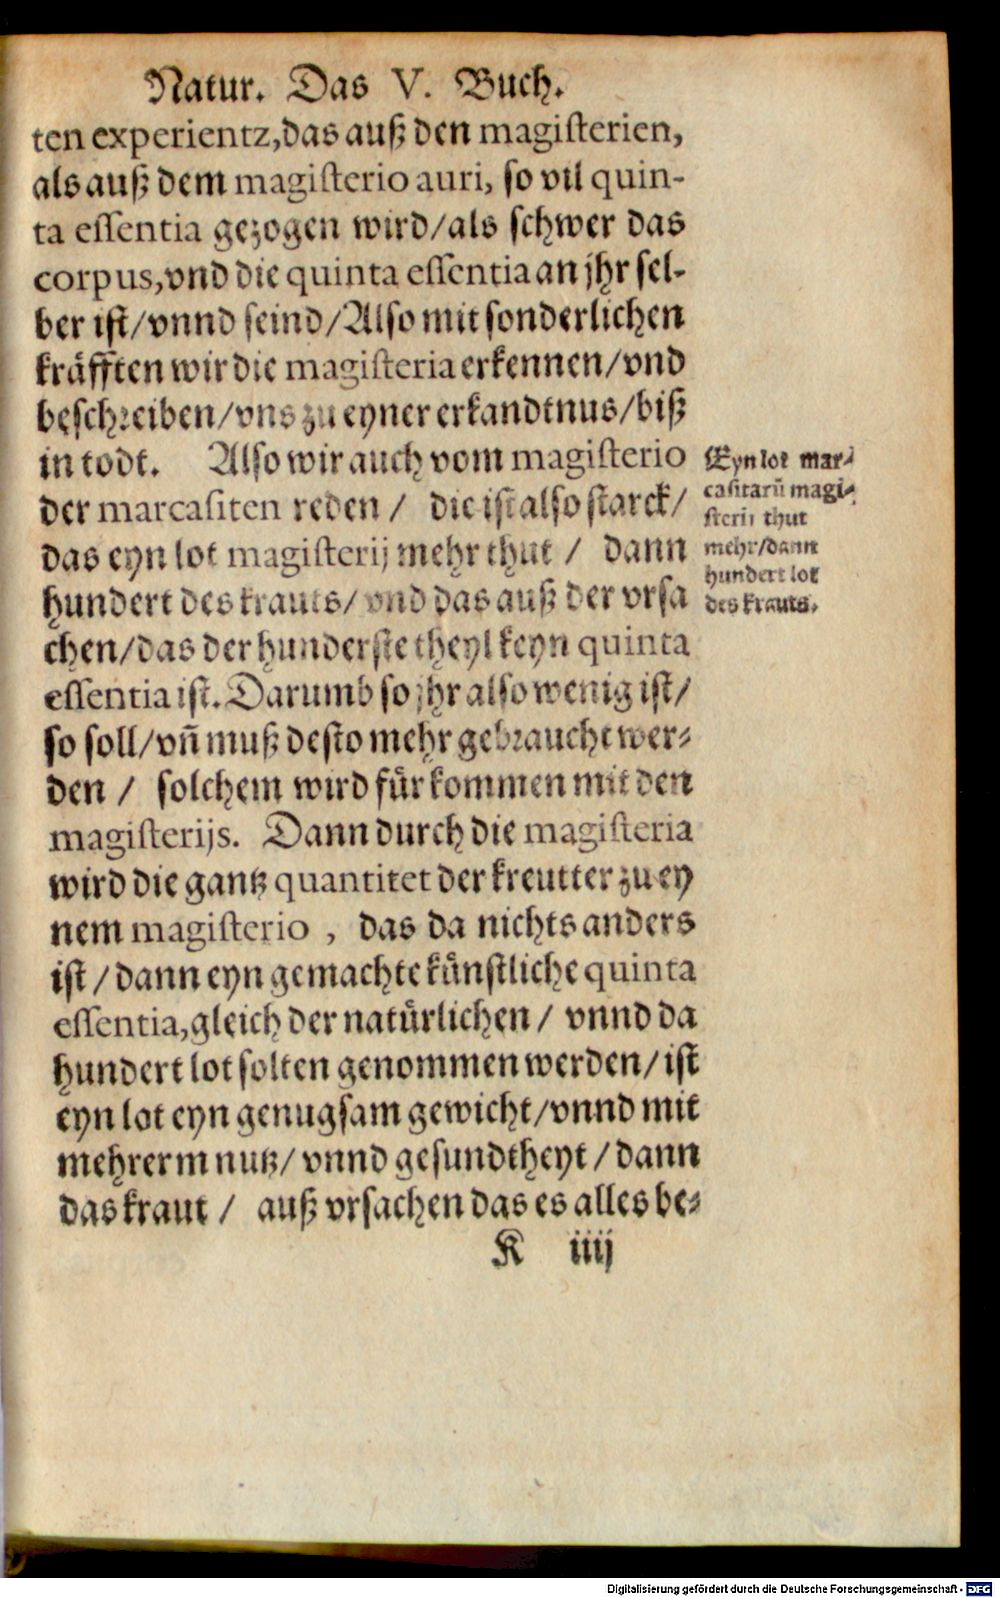 Natur. Das V. Buch.
ten experientz,das auß den magisterien,
als auß dem magisterio auri, so vil quin-
ta essentia gezogen wird/als schwer das
corpus,vnd die quinta essentia an jhr sel-
ber ist/vnnd seind/Also mit sonderlichen
kräfften wir die magisteria erkennen/vnd
beschreiben/vns zu eyner erkandtnus/biß
in todt. Also wir auch vom magisterio
der marcasiten reden / die ist also starck/
das eyn lot magisterij mehr thut / dann
hundert des krauts/vnd das auß der vrsa
chen/das der hunderste theyl keyn quinta
essentia ist. Darumb so jhr also wenig ist/
so soll/vñ muß desto mehr gebraucht wer-
den / solchem wird fürkommen mit den
magisterijs. Dann durch die magisteria
wird die gantz quantitet der kreutter zu ey
nem magisterio , das da nichts anders
ist/dann eyn gemachte künstliche quinta
essentia,gleich der natürlichen / vnnd da
hundert lot solten genommen werden/ist
eyn lot eyn genugsam gewicht/vnnd mit
mehrerm nutz/vnnd gesundtheyt/dann
das kraut / auß vrsachen das es alles be-
K iiij
Eyn lot mar-
casitarũ magi-
sterij thut
mehr/dann
hundert lot
des krauts.
Digitalisierung gefördert durch die Deutsche Forschungsgemeinschaft - DFG